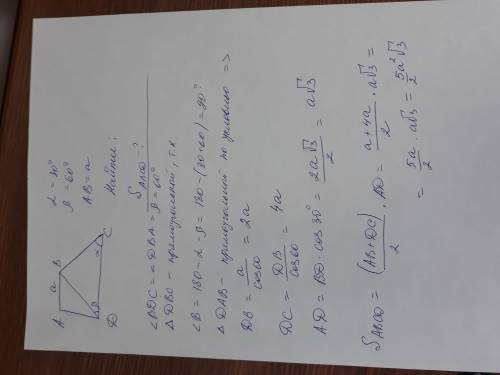 A
a
B
β
α
D
C
α = 30°
β = 60°
AB = a
Найти:
S_ABCD - ?
∠BDC = ∠DBA = β = 60°
△DBC - прямоугольный, т.к.
∠B = 180 - α - β = 180 - (30 + 60) = 90°
△DAB - прямоугольный по условию =>
DB = a/cos60 = 2a
DC = DB/cos60 = 4a
AD = BD · cos 30° = 2a√3/2 = a√3
S_ABCD = (AB + DC)/2 · AD = a + 4a/2 · a√3 =
= 5a/2 · a√3 = 5a²√3/2